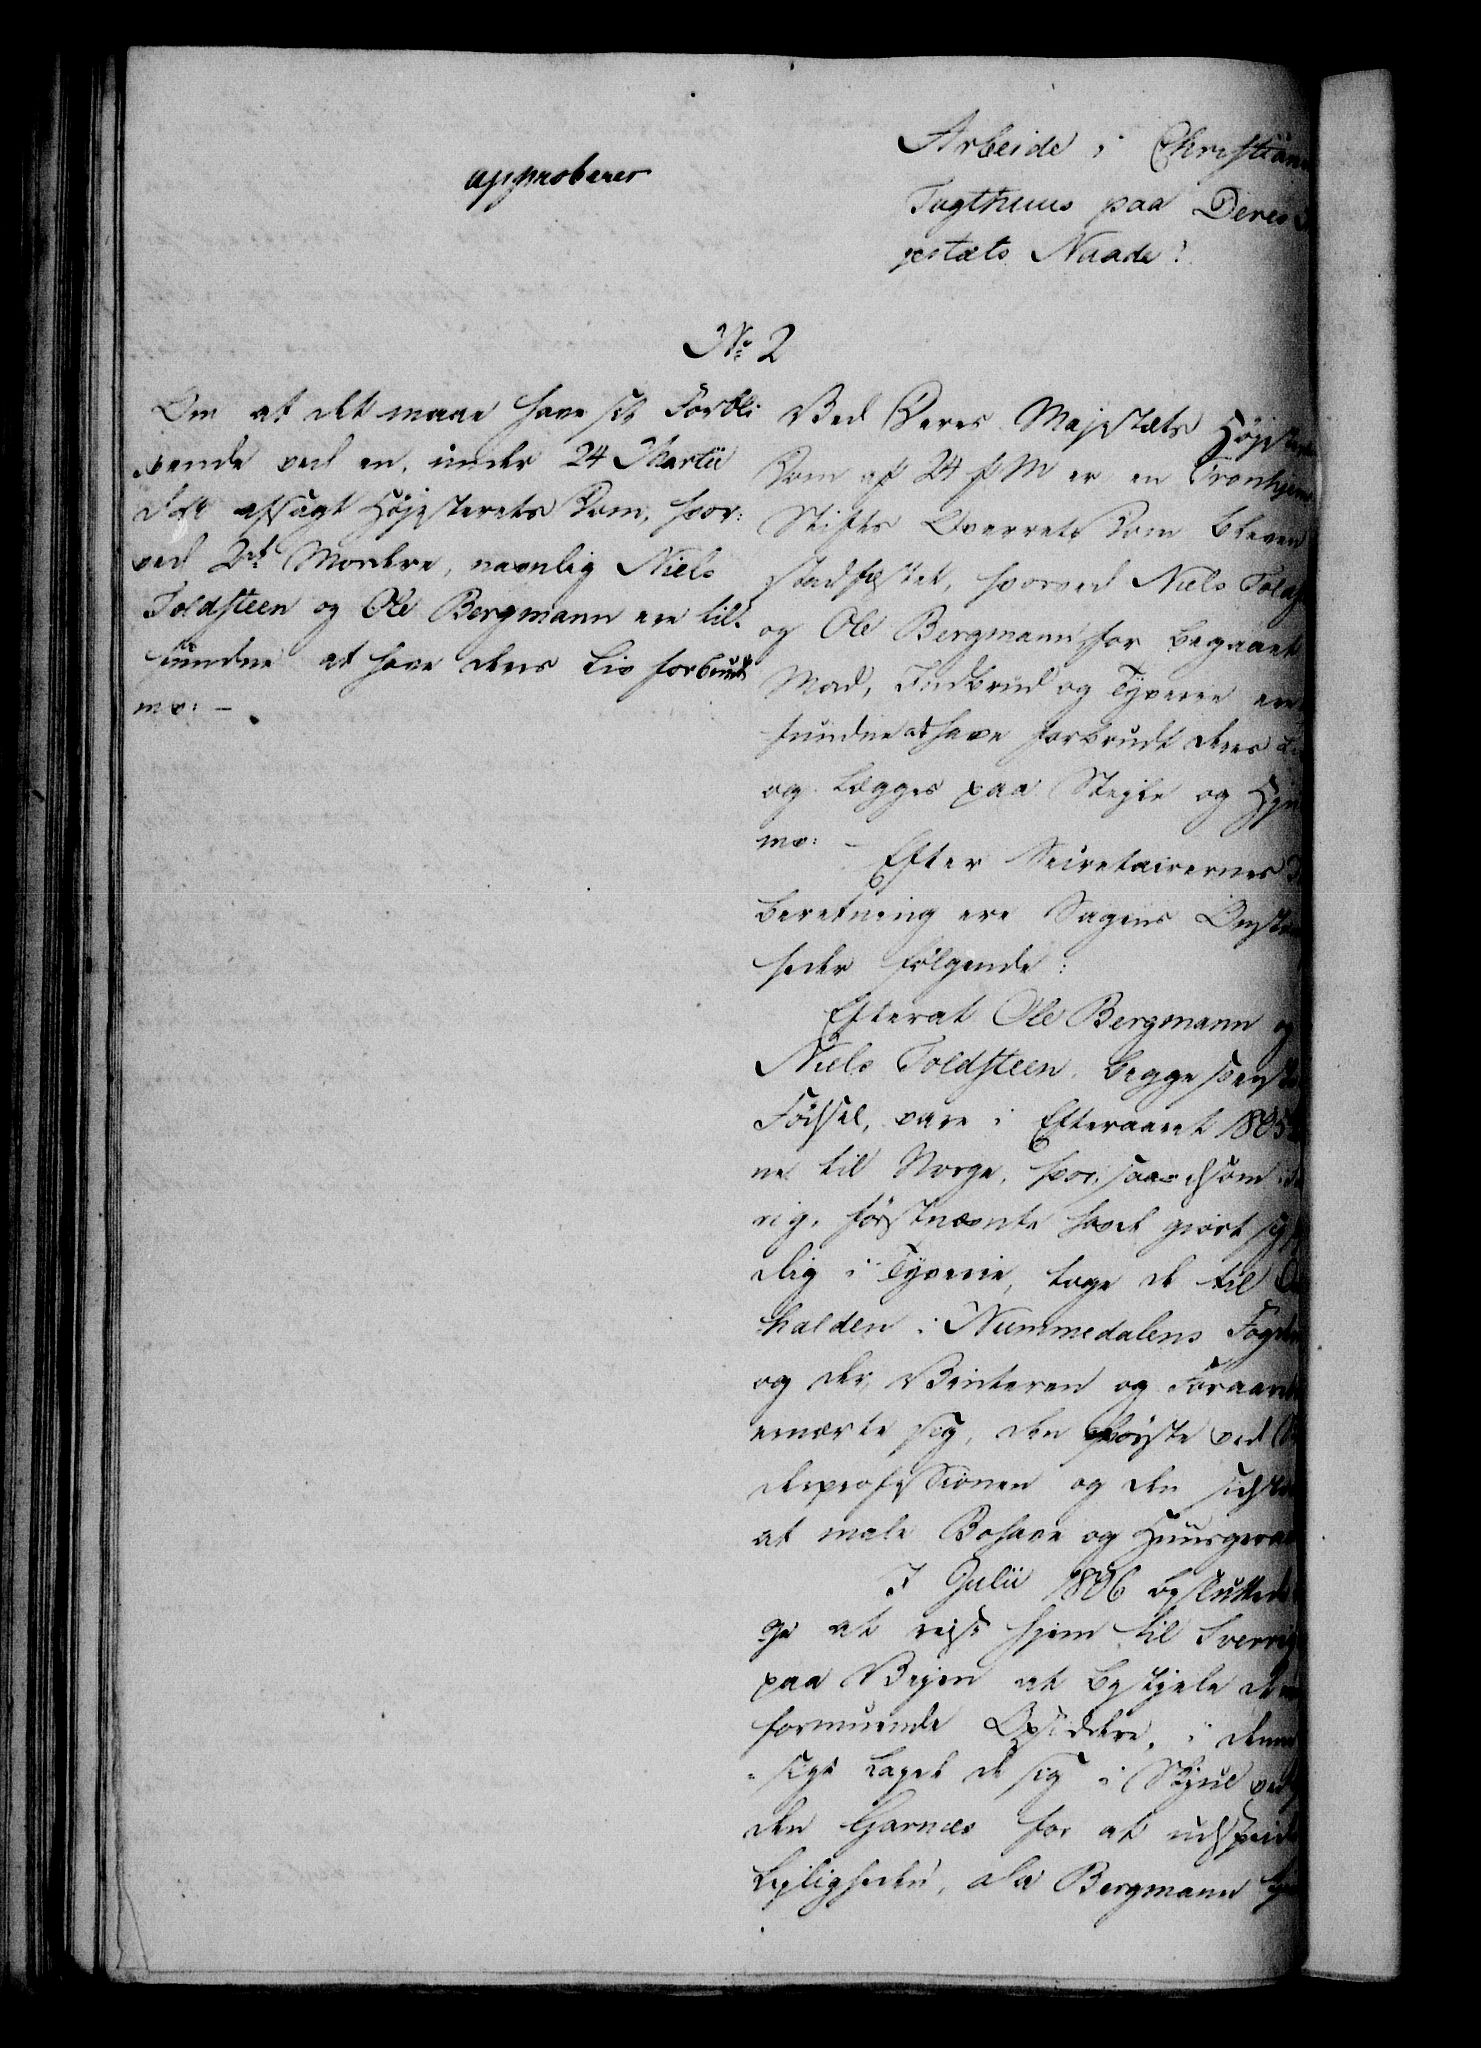 approberes
Arbeide i Christian
Tugthuus paa Deres
jestæts Naade?
No 2
Om at det maae have sit Forbli
vende ved en, under 24 Martii
afsagt Høiesterets Dom, hvor:
ved 2de Mordere, navnlig Niels
Toldsteen og Ole Bergmann ere til:
fundne at have deres Liv forbrudt
mv: -
Ved Deres Majestæts Højeste
Dom af 24 f M er en Tronhjems
Stifts Overrets Dom bleven
stadfæstet, hvorved Niels Tolds
og Ole Bergmann for begaaet
Mord, Indbrud og Tyverie ere
fundne at have forbrudt deres Li
og lægges paa Stejle og Hju
mv: -
Efter Secretairernes
beretning ere Sagens Omstæn
heder følgende:
Efterat Ole Bergmann og
Niels Toldsteen, begge svenske
Fødsel, vare i Efteraaret 1805
ne til Norge, hvor, saavelsom i
rig, førstnævnte havde giort sig
dig i Tyverie, toge de til
halden i Nummedalens Fogde
og der, Vinteren og Foraaret
ernærte sig, den første ved
derprofessionen og den sidste
at male Bohave og Huusgeraa
I Julii 1806 besluttede
ge at rejse hjem til Sverrig
paa Vejen at bestjele de
formuende Opsiddere, i denne
sigt lagde de sig i Skjul ved
den Garnæs for at udspeide
Lejligheden, Ole Bergmann